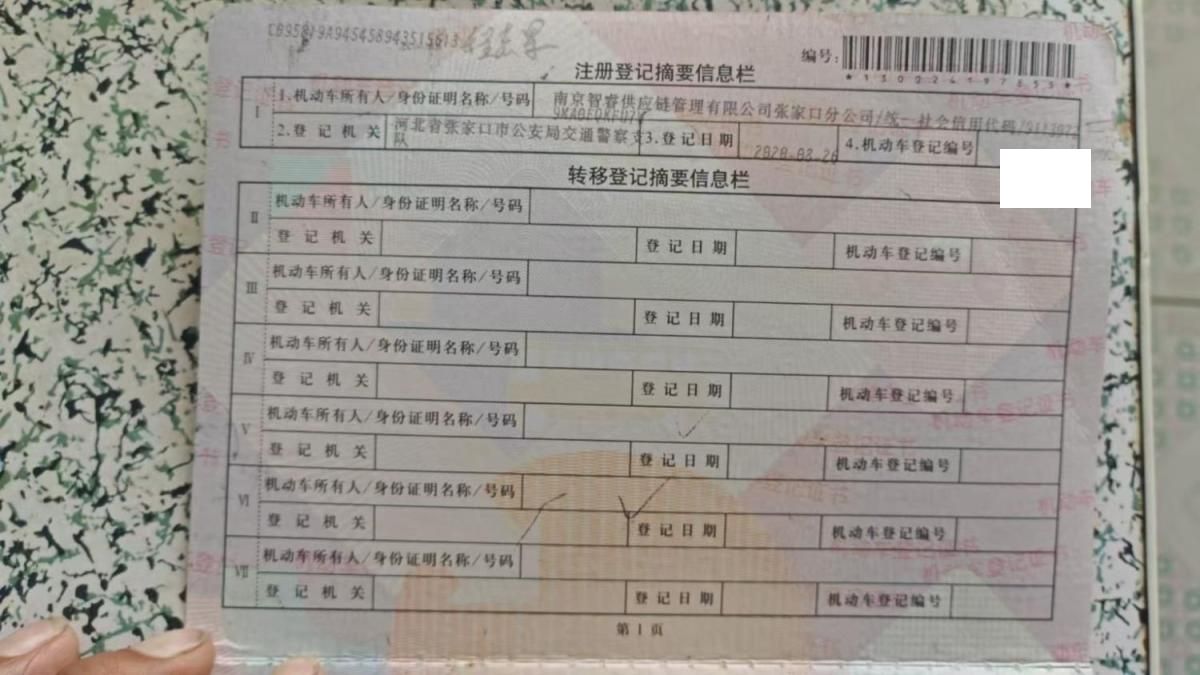 编号:
*130024197653*
注册登记摘要信息栏
I 1.机动车所有人/身份证明名称/号码 南京智睿供应链管理有限公司张家口分公司/统一社会信用代码/
2.登记机关 河北省张家口市公安局交通警察支队 3.登记日期 2020-03-26 4.机动车登记编号
转移登记摘要信息栏
II 机动车所有人/身份证明名称/号码
登记机关 登记日期 机动车登记编号
III 机动车所有人/身份证明名称/号码
登记机关 登记日期 机动车登记编号
IV 机动车所有人/身份证明名称/号码
登记机关 登记日期 机动车登记编号
V 机动车所有人/身份证明名称/号码
登记机关 登记日期 机动车登记编号
VI 机动车所有人/身份证明名称/号码
登记机关 登记日期 机动车登记编号
VII 机动车所有人/身份证明名称/号码
登记机关 登记日期 机动车登记编号
第1页